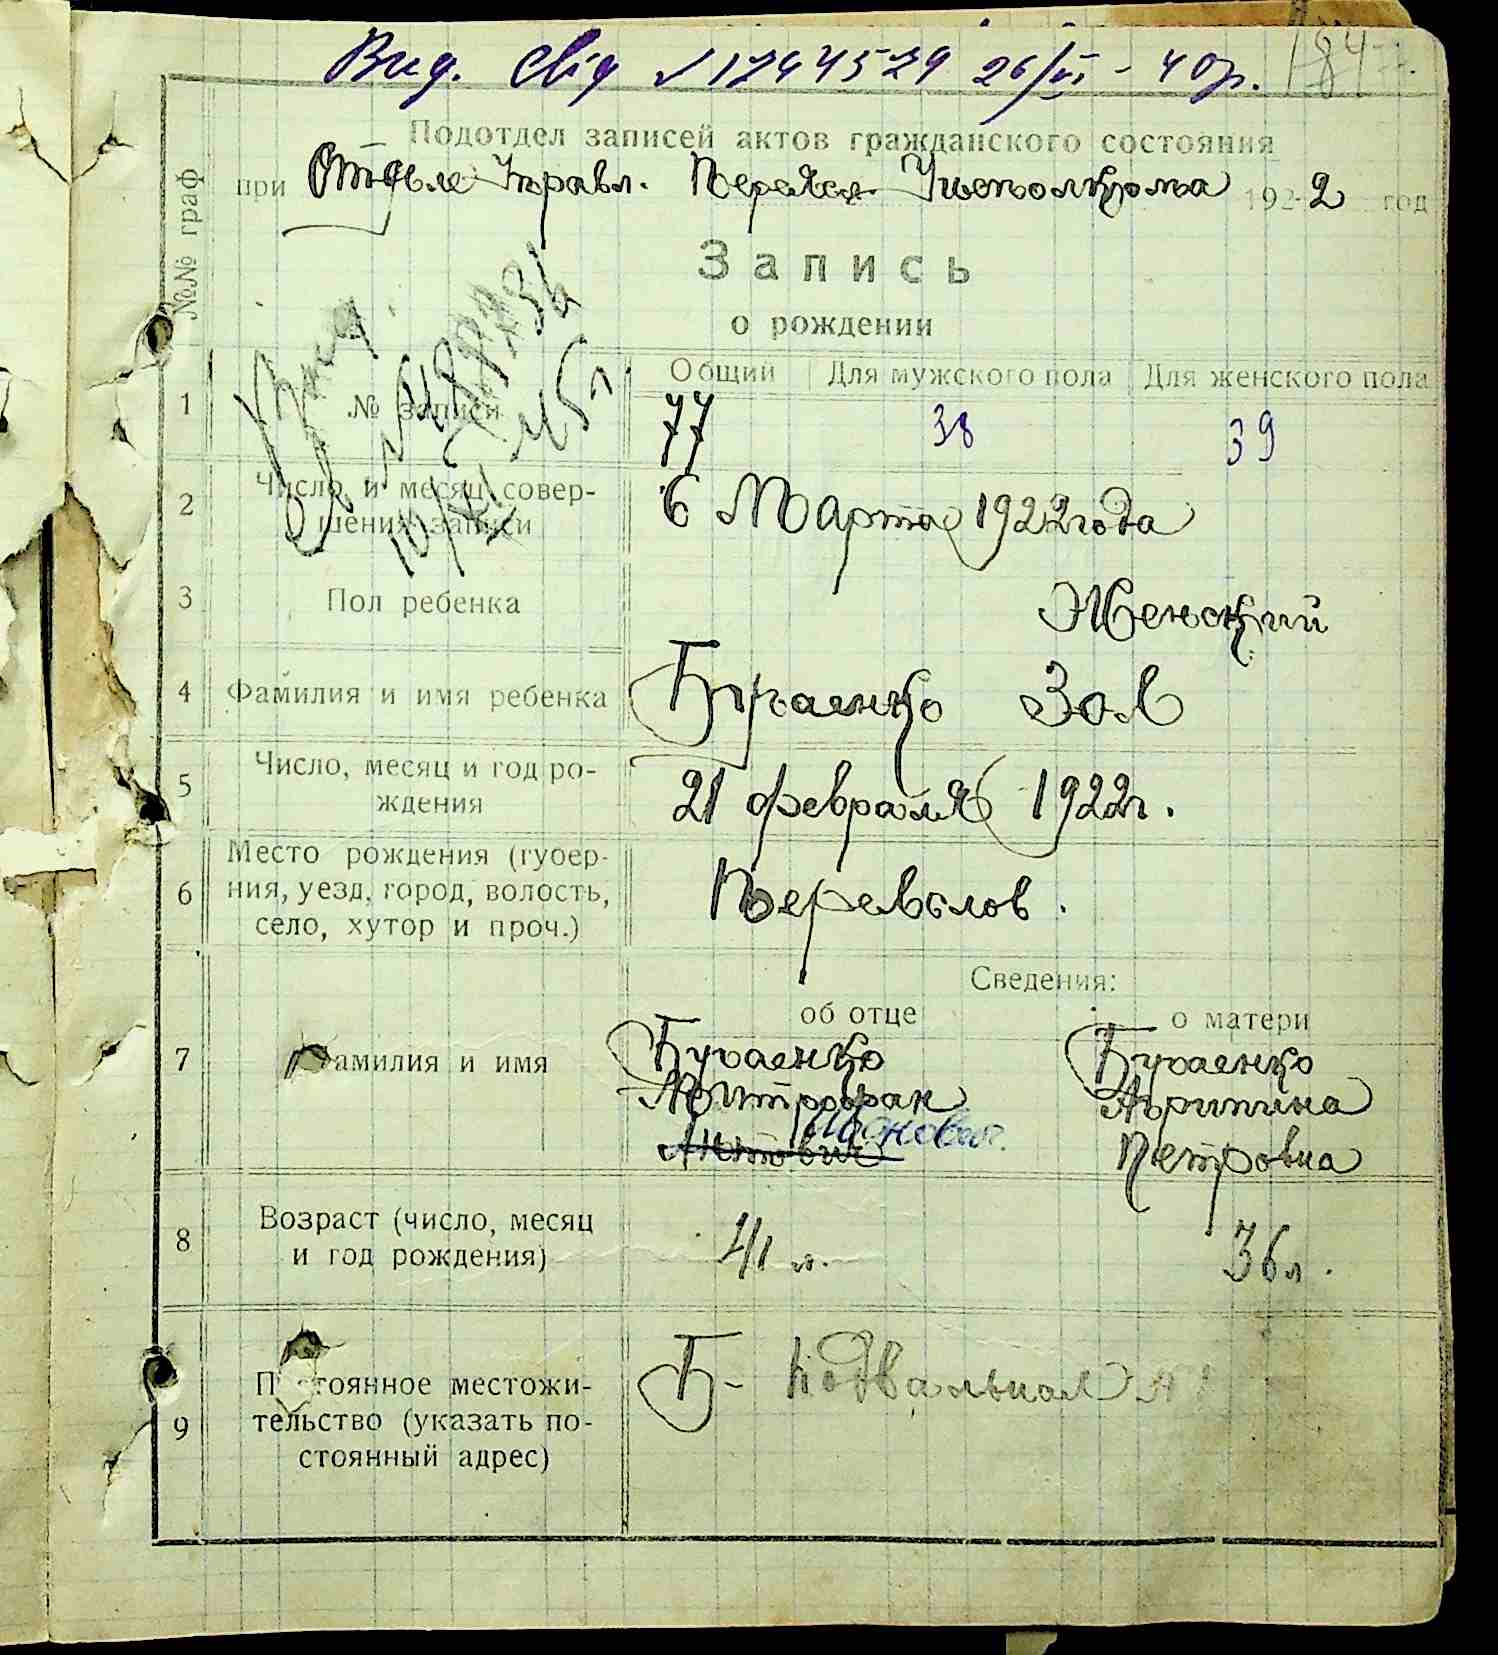 Вид. Свід №1744579 26/VI - 40р.
Подотдел записей актов гражданского состояния
при Отделе Управл. Переясл. Уисполкома 1922 год
№№ граф
Запись
о рождении
Общий Для мужского пола Для женского пола
1 № записи 77 38 39
2 Число и месяц совер-
шения записи 6 Марта 1922 года
3 Пол ребенка Женский
4 Фамилия и имя ребенка Бугаенко Зоя
5 Число, месяц и год ро-
ждения 21 февраля 1922 г.
6 Место рождения (губер-
ния, уезд, город, волость,
село, хутор и проч.) Переяслов.
Сведения:
об отце о матери
7 Фамилия и имя Бугаенко Бугаенко
Митрофан Агрипина
Петровна
8 Возраст (число, месяц
и год рождения) 41 л. 36 л.
9 Постоянное местожи-
тельство (указать по-
стоянный адрес) Б- Подвальная №